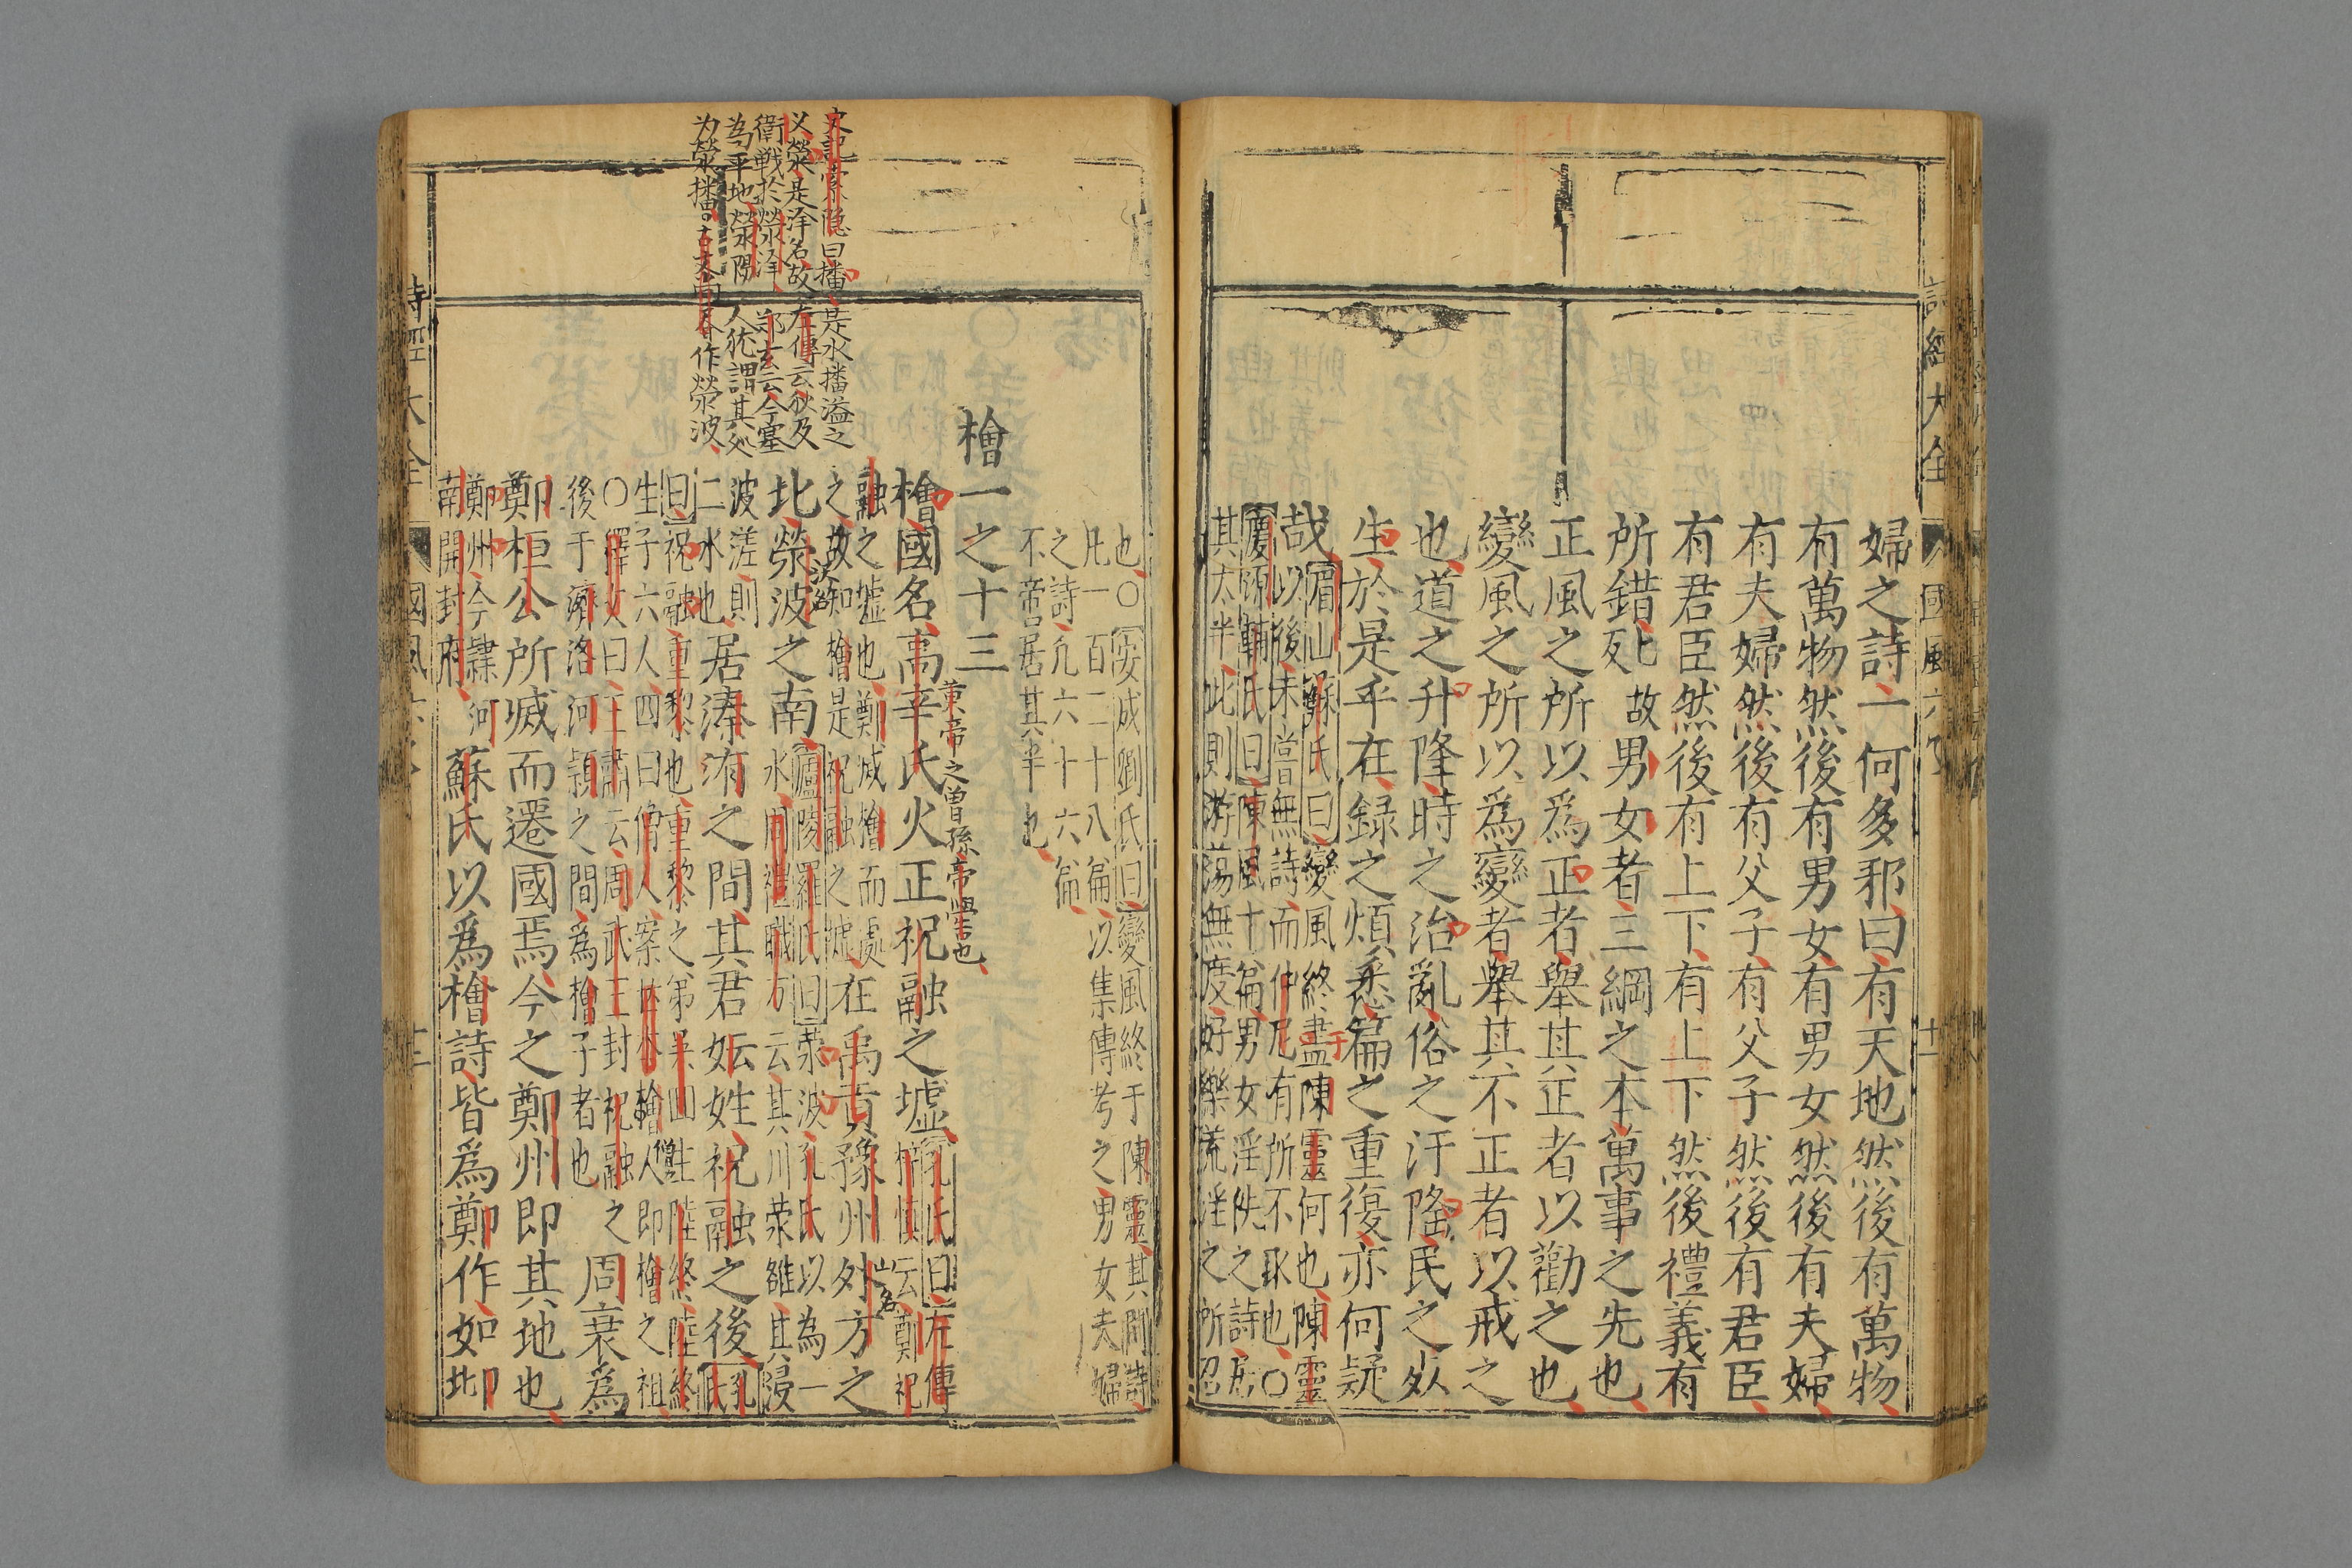 婦之詩一何多邪曰有天地然後有萬物
有萬物然後有男女有男女然後有夫婦
有夫婦然後有父子有父子然後有君臣
有君臣然後有上下有上下然後禮義有
所錯故男女者三綱之本萬事之先也
正風之所以爲正者舉其正者以勸之也
變風之所以爲變者舉其不正者以戒之
也道之升降時之治亂俗之汙隆民之死
生於是乎在錄之煩悉篇之重復亦何疑
哉
眉山蘇氏曰變風終盡于陳靈何也陳靈
以後未嘗無詩而仲尼有所不取也○
慶源輔氏曰陳風十篇男女淫泆之詩居
其太半此則游蕩無度好樂荒淫之所召
也○安成劉氏曰變風終于陳靈其間詩
凡一百二十八篇以集傳考之男女夫婦
之詩凡六十六篇
不啻居其半也
檜一之十三
黄帝之曽孫帝嚳也
檜國名高辛氏火正祝融之墟
孔氏曰左傳
梓慎云鄭祝
融之墟也鄭滅檜而處
之故知檜是祝融之墟
在禹貢豫州外方之
山名
北滎波之南
廬陵羅氏曰滎波孔氏以為一
水周禮職方云其川滎雒其浸
波溠則
二水也
居溱洧之間其君妘姓祝融之後
孔氏
曰祝融重黎也重黎之弟吴回生陸終陸終
生子六人四曰檜人案世本檜人即檜之祖
○釋文曰王肅云周武王封祝融之
後于濟洛河潁之間為檜子者也
周衰爲
鄭桓公所滅而遷國焉今之鄭州即其地也
鄭州今隸河
南開封府
蘇氏以爲檜詩皆爲鄭作如邶
史記索隐曰播是水播溢之
义滎是泽名故左傳云狄及
衛戦於滎泽郑玄云今塞
為平地滎陽人犹謂其处
为滎播古文作滎波
詩經大全
國風六
十二
詩經大全
國風六
十一